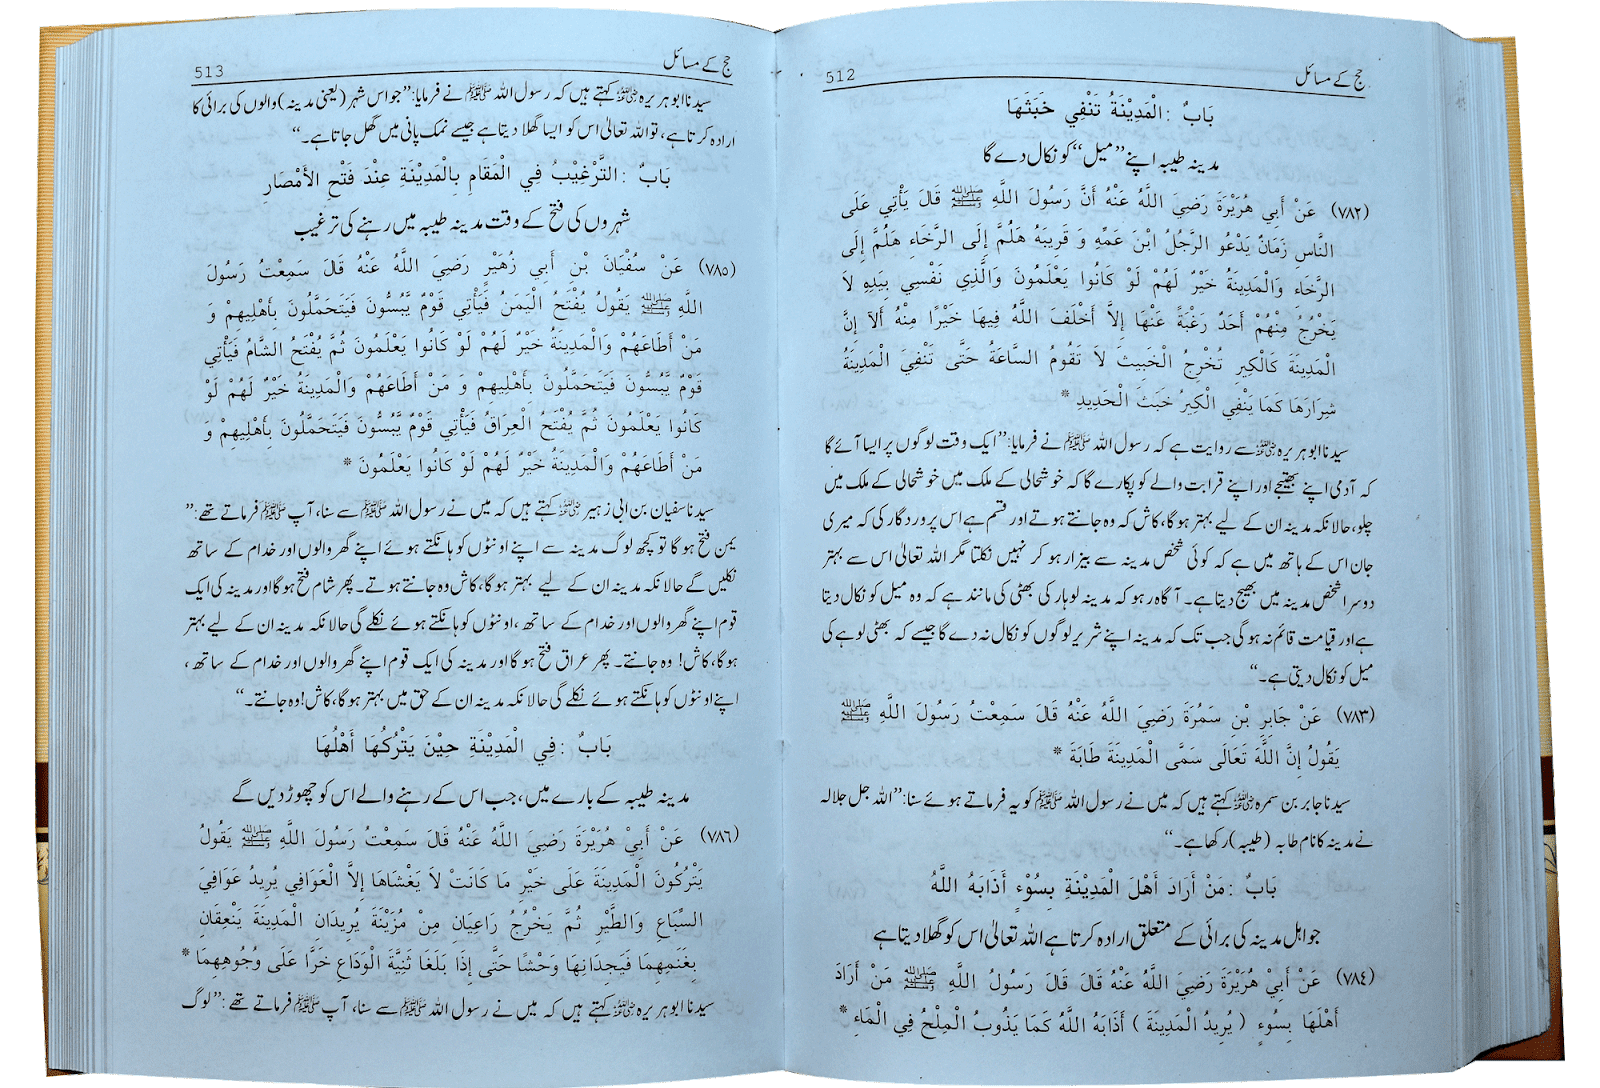 512 حج کے مسائل
بَابٌ : الْمَدِيْنَةُ تَنْفِي خَبَثَهَا
مدینہ طیبہ اپنے ’’میل‘‘ کو نکال دے گا
(٧٨٢) عَنْ أَبِي هُرَيْرَةَ رَضِيَ اللَّهُ عَنْهُ أَنَّ رَسُولَ اللَّهِ ﷺ قَالَ يَأْتِي عَلَى
النَّاسِ زَمَانٌ يَدْعُو الرَّجُلُ ابْنَ عَمِّهِ وَ قَرِيبَهُ هَلُمَّ إِلَى الرَّخَاءِ هَلُمَّ إِلَى
الرَّخَاءِ وَالْمَدِينَةُ خَيْرٌ لَهُمْ لَوْ كَانُوا يَعْلَمُونَ وَالَّذِي نَفْسِي بِيَدِهِ لاَ
يَخْرُجُ مِنْهُمْ أَحَدٌ رَغْبَةً عَنْهَا إِلاَّ أَخْلَفَ اللَّهُ فِيهَا خَيْرًا مِنْهُ أَلاَ إِنَّ
الْمَدِيْنَةَ كَالْكِيرِ تُخْرِجُ الْخَبِيثَ لاَ تَقُومُ السَّاعَةُ حَتَّى تَنْفِيَ الْمَدِيْنَةُ
شِرَارَهَا كَمَا يَنْفِي الْكِيرُ خَبَثَ الْحَدِيدِ *
سیدنا ابوہریرہ ؓ سے روایت ہے کہ رسول اللہ ﷺ نے فرمایا: ’’ایک وقت لوگوں پر ایسا آئے گا
کہ آدمی اپنے بھتیجے اور اپنے قرابت والے کو پکارے گا کہ خوشحالی کے ملک میں خوشحالی کے ملک میں
چلو، حالانکہ مدینہ ان کے لیے بہتر ہو گا، کاش کہ وہ جانتے ہوتے اور قسم ہے اس پروردگار کی کہ میری
جان اس کے ہاتھ میں ہے کہ کوئی شخص مدینہ سے بیزار ہو کر نہیں نکلتا مگر اللہ تعالیٰ اس سے بہتر
دوسرا شخص مدینہ میں بھیج دیتا ہے۔ آگاہ رہو کہ مدینہ لوہار کی بھٹی کی مانند ہے کہ وہ میل کو نکال دیتا
ہے اور قیامت قائم نہ ہو گی جب تک کہ مدینہ اپنے شریر لوگوں کو نکال نہ دے گا جیسے کہ بھٹی لوہے کی
میل کو نکال دیتی ہے۔‘‘
(٧٨٣) عَنْ جَابِرِ بْنِ سَمُرَةَ رَضِيَ اللَّهُ عَنْهُ قَالَ سَمِعْتُ رَسُولَ اللَّهِ ﷺ
يَقُولُ إِنَّ اللَّهَ تَعَالَى سَمَّى الْمَدِيْنَةَ طَابَةَ *
سیدنا جابر بن سمرہ ؓ کہتے ہیں کہ میں نے رسول اللہ ﷺ کو یہ فرماتے ہوئے سنا: ’’اللہ جل جلالہ
نے مدینہ کا نام طابہ (طیبہ) رکھا ہے۔‘‘
بَابٌ : مَنْ أَرَادَ أَهْلَ الْمَدِيْنَةِ بِسُوْءٍ أَذَابَهُ اللَّهُ
جو اہل مدینہ کی برائی کے متعلق ارادہ کرتا ہے اللہ تعالیٰ اس کو گھلا دیتا ہے
(٧٨٤) عَنْ أَبِيْ هُرَيْرَةَ رَضِيَ اللَّهُ عَنْهُ قَالَ قَالَ رَسُولُ اللَّهِ ﷺ مَنْ أَرَادَ
أَهْلَهَا بِسُوءٍ ( يُرِيدُ الْمَدِينَةَ ) أَذَابَهُ اللَّهُ كَمَا يَذُوبُ الْمِلْحُ فِي الْمَاءِ *
513 حج کے مسائل
سیدنا ابوہریرہ ؓ کہتے ہیں کہ رسول اللہ ﷺ نے فرمایا: ’’جو اس شہر (یعنی مدینہ) والوں کی برائی کا
ارادہ کرتا ہے، تو اللہ تعالیٰ اس کو ایسا گھلا دیتا ہے جیسے نمک پانی میں گھل جاتا ہے۔‘‘
بَابٌ : التَّرْغِيْبُ فِي الْمَقَامِ بِالْمَدِيْنَةِ عِنْدَ فَتْحِ الأَمْصَارِ
شہروں کی فتح کے وقت مدینہ طیبہ میں رہنے کی ترغیب
(٧٨٥) عَنْ سُفْيَانَ بْنِ أَبِي زُهَيْرٍ رَضِيَ اللَّهُ عَنْهُ قَالَ سَمِعْتُ رَسُولَ
اللَّهِ ﷺ يَقُولُ يُفْتَحُ الْيَمَنُ فَيَأْتِي قَوْمٌ يَّبُسُّونَ فَيَتَحَمَّلُونَ بِأَهْلِيهِمْ وَ
مَنْ أَطَاعَهُمْ وَالْمَدِينَةُ خَيْرٌ لَهُمْ لَوْ كَانُوا يَعْلَمُونَ ثُمَّ يُفْتَحُ الشَّامُ فَيَأْتِي
قَوْمٌ يَّبُسُّونَ فَيَتَحَمَّلُونَ بِأَهْلِيهِمْ وَ مَنْ أَطَاعَهُمْ وَالْمَدِينَةُ خَيْرٌ لَهُمْ لَوْ
كَانُوا يَعْلَمُونَ ثُمَّ يُفْتَحُ الْعِرَاقُ فَيَأْتِي قَوْمٌ يَّبُسُّونَ فَيَتَحَمَّلُونَ بِأَهْلِيهِمْ وَ
مَنْ أَطَاعَهُمْ وَالْمَدِينَةُ خَيْرٌ لَهُمْ لَوْ كَانُوا يَعْلَمُونَ *
سیدنا سفیان بن ابی زہیر ؓ کہتے ہیں کہ میں نے رسول اللہ ﷺ سے سنا، آپ ﷺ فرماتے تھے: ’’
یمن فتح ہو گا تو کچھ لوگ مدینہ سے اپنے اونٹوں کو ہانکتے ہوئے اپنے گھر والوں اور خدام کے ساتھ
نکلیں گے حالانکہ مدینہ ان کے لیے بہتر ہو گا، کاش وہ جانتے ہوتے۔ پھر شام فتح ہو گا اور مدینہ کی ایک
قوم اپنے گھر والوں اور خدام کے ساتھ، اونٹوں کو ہانکتے ہوئے نکلے گی حالانکہ مدینہ ان کے لیے بہتر
ہو گا، کاش! وہ جانتے۔ پھر عراق فتح ہو گا اور مدینہ کی ایک قوم اپنے گھر والوں اور خدام کے ساتھ،
اپنے اونٹوں کو ہانکتے ہوئے نکلے گی حالانکہ مدینہ ان کے حق میں بہتر ہو گا، کاش! وہ جانتے۔‘‘
بَابٌ : فِي الْمَدِيْنَةِ حِيْنَ يَتْرُكُهَا أَهْلُهَا
مدینہ طیبہ کے بارے میں، جب اس کے رہنے والے اس کو چھوڑ دیں گے
(٧٨٦) عَنْ أَبِيْ هُرَيْرَةَ رَضِيَ اللَّهُ عَنْهُ قَالَ سَمِعْتُ رَسُولَ اللَّهِ ﷺ يَقُولُ
يَتْرُكُونَ الْمَدِينَةَ عَلَى خَيْرِ مَا كَانَتْ لاَ يَغْشَاهَا إِلاَّ الْعَوَافِي يُرِيدُ عَوَافِيَ
السِّبَاعِ وَالطَّيْرِ ثُمَّ يَخْرُجُ رَاعِيَانِ مِنْ مُزَيْنَةَ يُرِيدَانِ الْمَدِينَةَ يَنْعِقَانِ
بِغَنَمِهِمَا فَيَجِدَانِهَا وَحْشًا حَتَّى إِذَا بَلَغَا ثَنِيَّةَ الْوَدَاعِ خَرَّا عَلَى وُجُوهِهِمَا *
سیدنا ابوہریرہ ؓ کہتے ہیں کہ میں نے رسول اللہ ﷺ سے سنا، آپ ﷺ فرماتے تھے: ’’لوگ